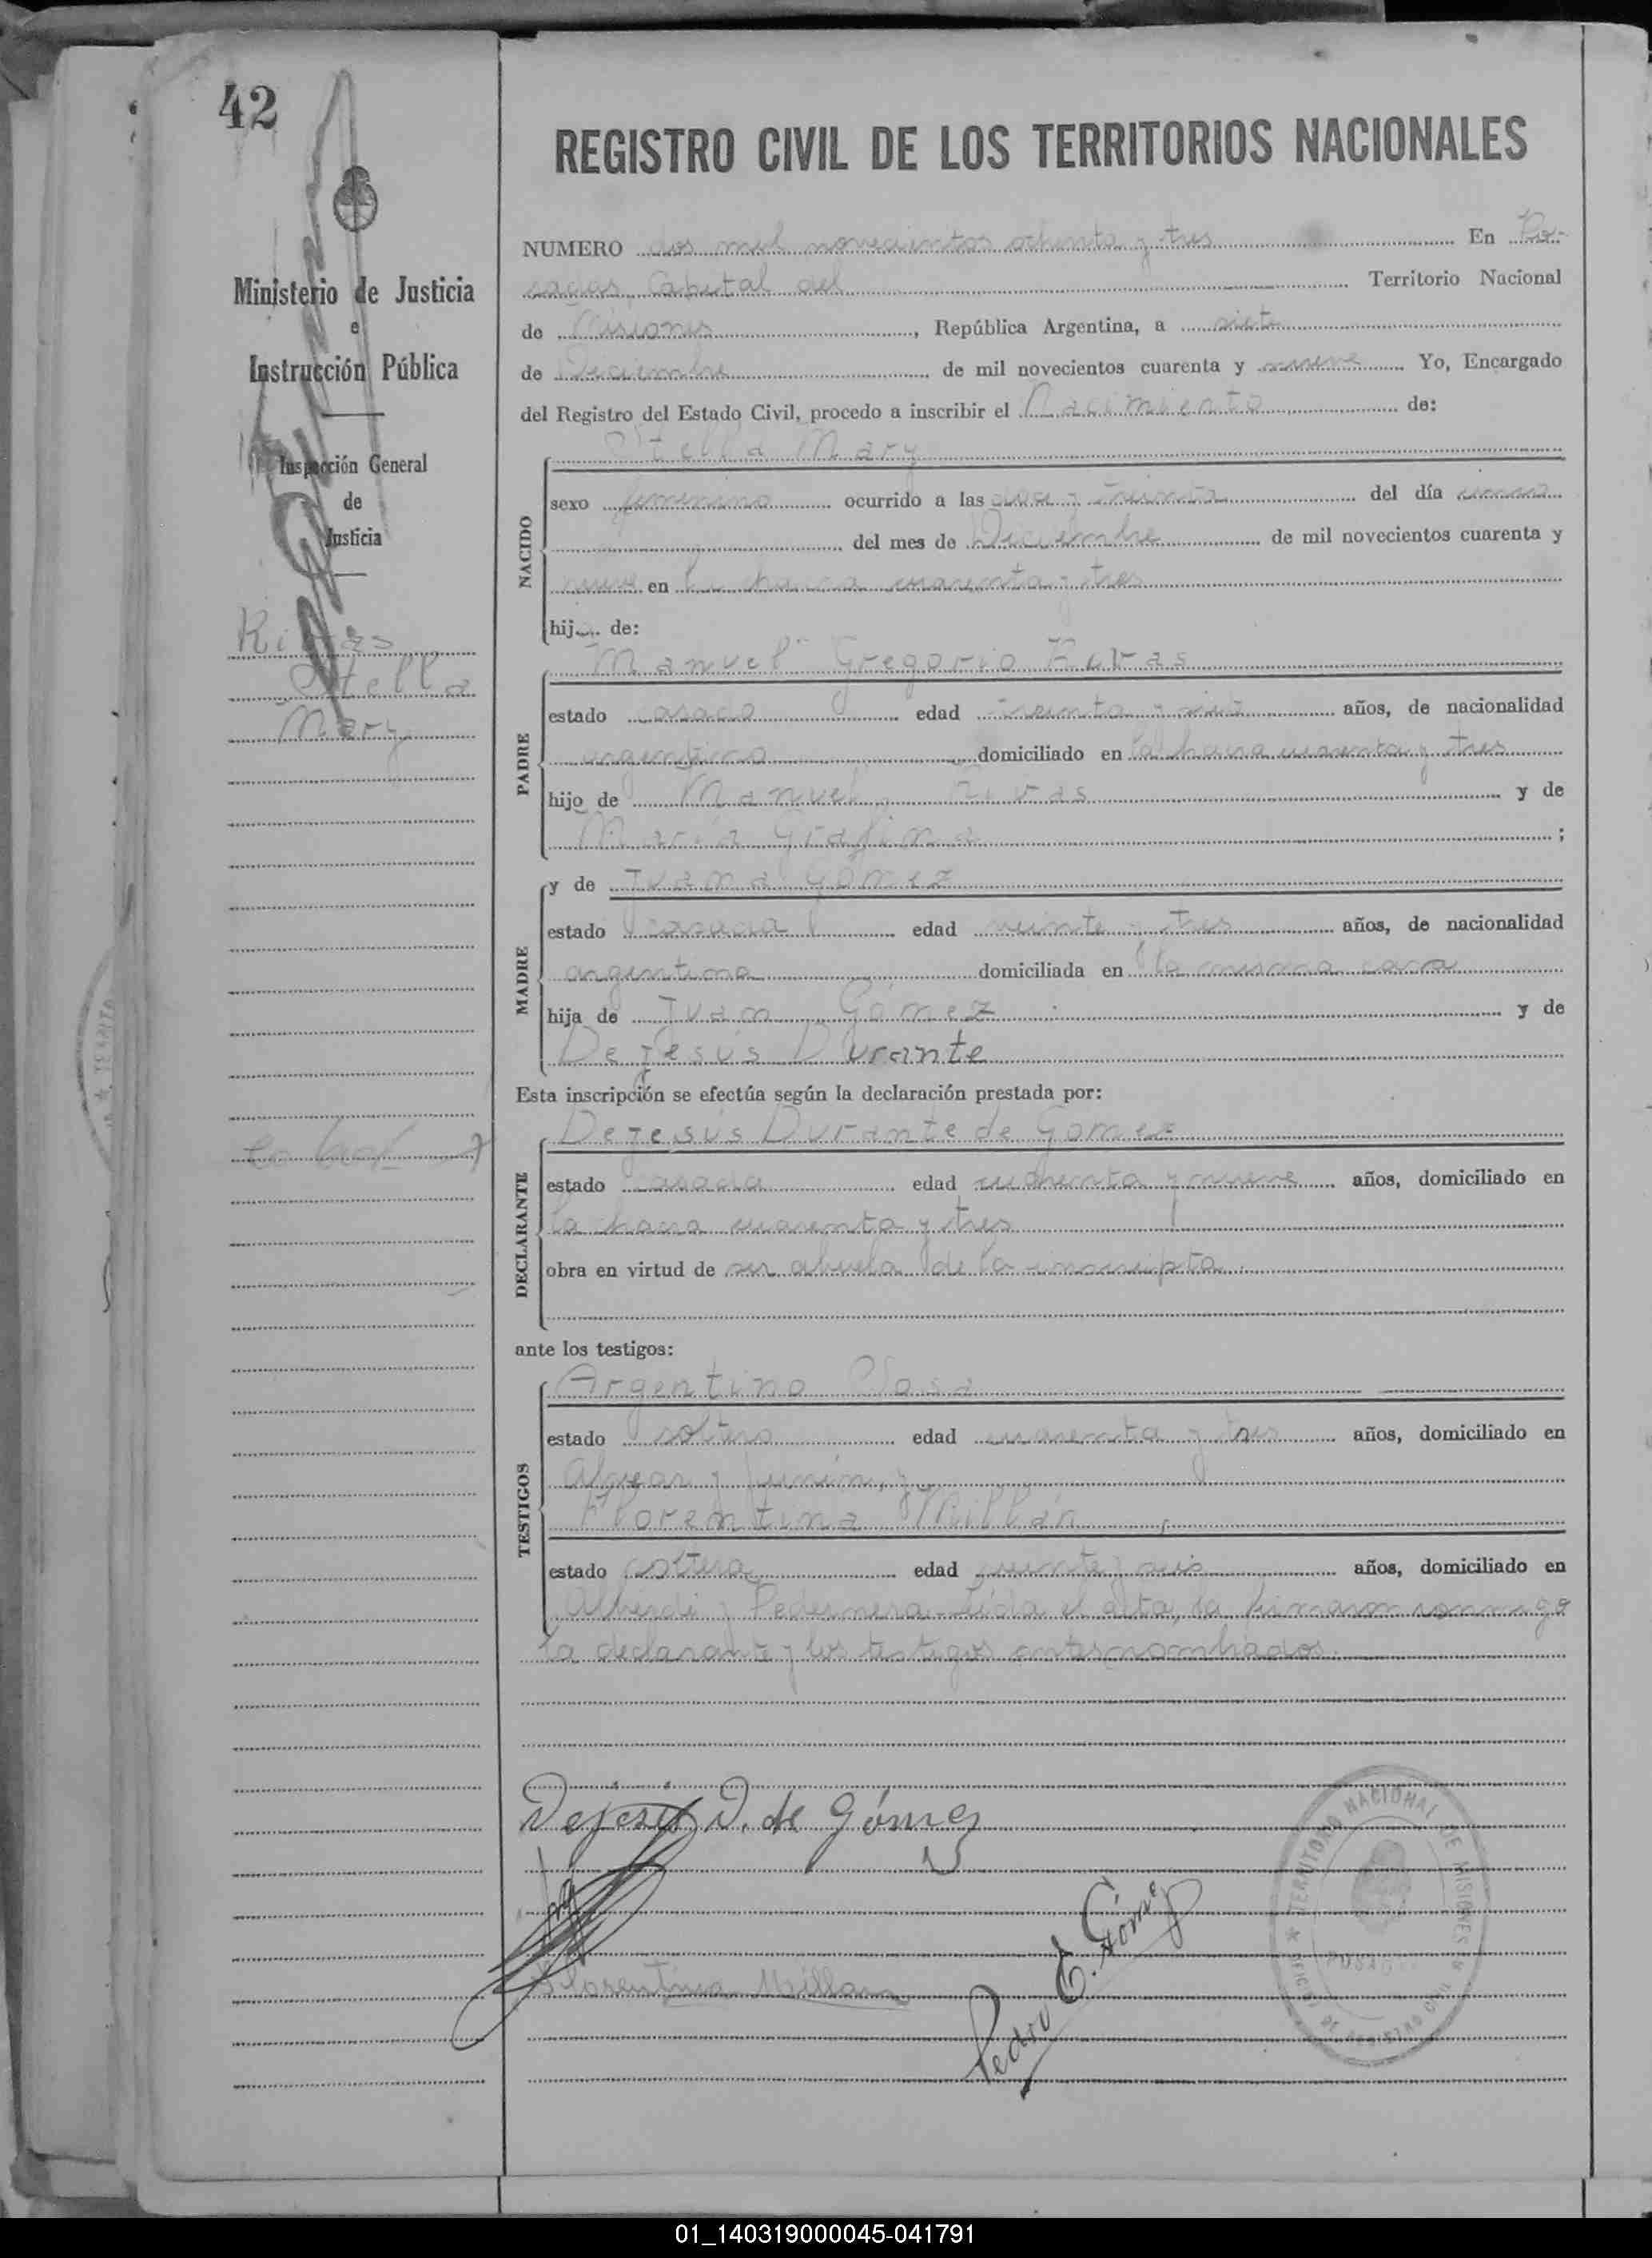 42
REGISTRO CIVIL DE LOS TERRITORIOS NACIONALES
Ministerio de Justicia
e
Instrucción Pública
Inspección General
de
Justicia
Rivas
Stella
Mary
NUMERO dos mil novecientos ochenta y tres En Po-
sadas, Capital del Territorio Nacional
de Misiones, República Argentina, a siete
de Diciembre de mil novecientos cuarenta y nueve Yo, Encargado
del Registro del Estado Civil, procedo a inscribir el Nacimiento de:
Stella Mary
NACIDO
sexo femenino ocurrido a las y treinta del día uno
del mes de Diciembre de mil novecientos cuarenta y
nueve en la chacra cuarenta y tres
hija de:
Manuel Gregorio Rivas
PADRE
estado casado edad treinta y años, de nacionalidad
argentino domiciliado en la chacra cuarenta y tres
hijo de Manuel Rivas y de
María ;
MADRE
y de Juana Gómez
estado casada edad veinte y tres años, de nacionalidad
argentina domiciliada en la misma casa
hija de Juan Gómez y de
De Jesús Durante
Esta inscripción se efectúa según la declaración prestada por:
DECLARANTE
Dejesús Durante de Gomez
estado casada edad cuarenta y nueve años, domiciliado en
la chacra cuarenta y tres
obra en virtud de ser abuela de la inscripta
ante los testigos:
TESTIGOS
Argentino
estado soltero edad cuarenta y tres años, domiciliado en
Alvear y Junín, y
Florentina Millán
estado soltera edad veinte y seis años, domiciliado en
Alberdi y Pedernera - Leída el acta, la firmaron conmigo
la declarante y los testigos antes nombrados.
Dejesús D. de Gómez
Florentina Millan
Pedro E. Góm
TERRITORIO NACIONAL DE MISIONES
01_140319000045-041791